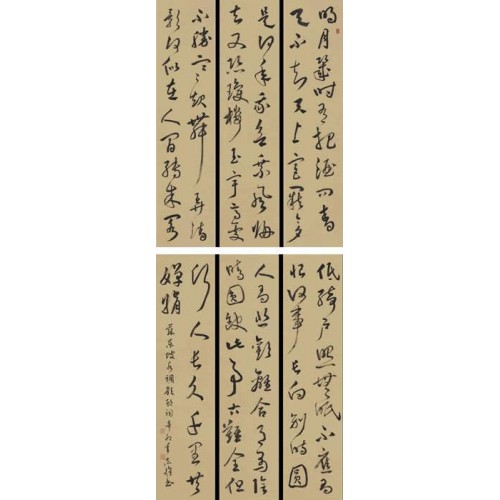 明月幾時有把酒問青
天不知天上宮闕今夕
是何年我欲乘風歸
去又恐瓊樓玉宇高處
不勝寒起舞弄清
影何似在人間轉朱閣
低綺戶照無眠不應有
恨何事長向別時圓
人有悲歡離合月有陰
晴圓缺此事古難全但
願人長久千里共
嬋娟
蘇東坡水調歌頭詞辛卯書